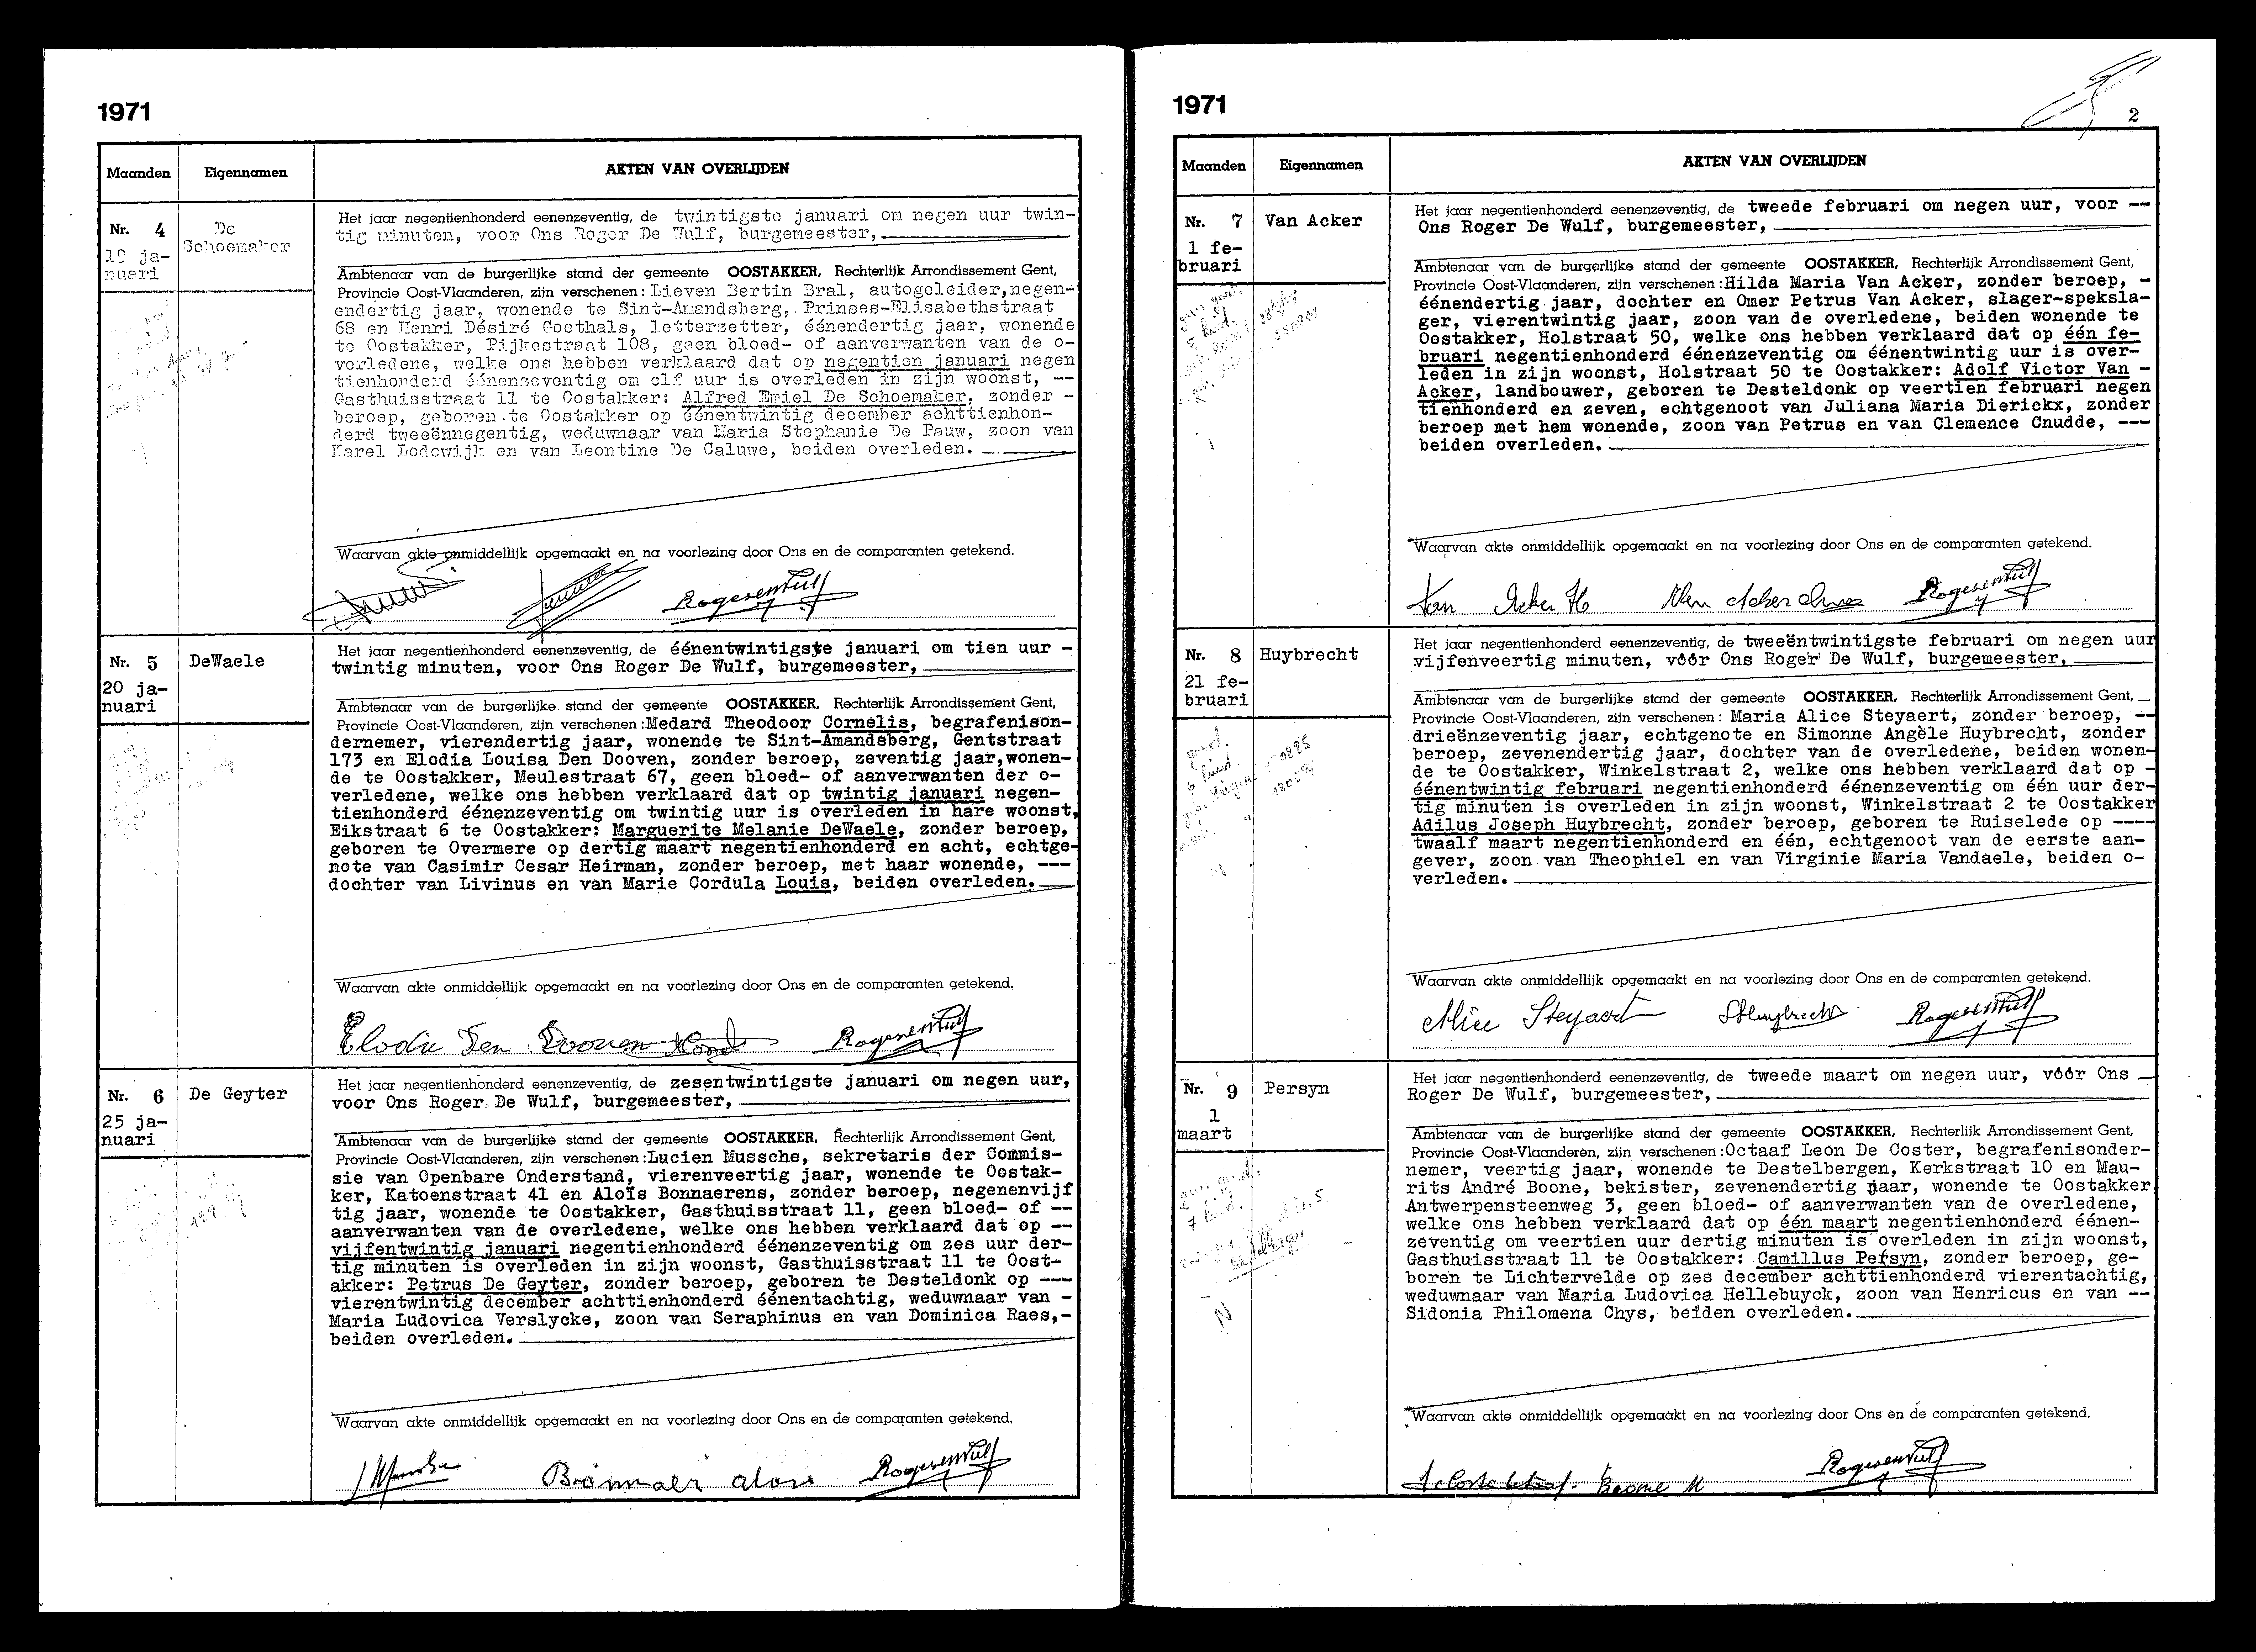 1971
Maanden Eigennamen AKTEN VAN OVERLIJDEN
Nr. 4
19 ja-
nuari
De
Schoemaker
Het jaar negentienhonderd eenenzeventig, de twintigste januari om negen uur twin-
tig minuten, voor Ons Roger De Wulf, burgemeester,
Ambtenaar van de burgerlijke stand der gemeente OOSTAKKER, Rechterlijk Arrondissement Gent,
Provincie Oost-Vlaanderen, zijn verschenen: Lieven Bertin Bral, autogeleider, negen-
endertig jaar, wonende te Sint-Amandsberg, Prinses-Elisabethstraat
68 en Henri Désiré Goethals, letterzetter, éénendertig jaar, wonende
te Oostakker, Pijkestraat 108, geen bloed- of aanverwanten van de o-
verledene, welke ons hebben verklaard dat op negentien januari negen
tienhonderd éénenzeventig om elf uur is overleden in zijn woonst, --
Gasthuisstraat 11 te Oostakker: Alfred Emiel De Schoemaker, zonder -
beroep, geboren te Oostakker op éénentwintig december achttienhon-
derd tweeënnegentig, weduwnaar van Maria Stephanie De Pauw, zoon van
Karel Lodewijk en van Leontine De Caluwe, beiden overleden.
Waarvan akte onmiddellijk opgemaakt en na voorlezing door Ons en de comparanten getekend.
Rogerdewulf
Nr. 5
20 ja-
nuari
DeWaele
Het jaar negentienhonderd eenenzeventig, de éénentwintigste januari om tien uur -
twintig minuten, voor Ons Roger De Wulf, burgemeester,
Ambtenaar van de burgerlijke stand der gemeente OOSTAKKER, Rechterlijk Arrondissement Gent,
Provincie Oost-Vlaanderen, zijn verschenen: Medard Theodoor Cornelis, begrafenison-
dernemer, vierendertig jaar, wonende te Sint-Amandsberg, Gentstraat
173 en Elodia Louisa Den Dooven, zonder beroep, zeventig jaar, wonen-
de te Oostakker, Meulestraat 67, geen bloed- of aanverwanten der o-
verledene, welke ons hebben verklaard dat op twintig januari negen-
tienhonderd éénenzeventig om twintig uur is overleden in hare woonst,
Eikstraat 6 te Oostakker: Marguerite Melanie DeWaele, zonder beroep,
geboren te Overmere op dertig maart negentienhonderd en acht, echtge-
note van Casimir Cesar Heirman, zonder beroep, met haar wonende, ---
dochter van Livinus en van Marie Cordula Louis, beiden overleden.
Waarvan akte onmiddellijk opgemaakt en na voorlezing door Ons en de comparanten getekend.
Elodie Den Dooven Rogerdewulf
Nr. 6
25 ja-
nuari
De Geyter
Het jaar negentienhonderd eenenzeventig, de zesentwintigste januari om negen uur,
voor Ons Roger De Wulf, burgemeester,
Ambtenaar van de burgerlijke stand der gemeente OOSTAKKER, Rechterlijk Arrondissement Gent,
Provincie Oost-Vlaanderen, zijn verschenen: Lucien Mussche, sekretaris der Commis-
sie van Openbare Onderstand, vierenveertig jaar, wonende te Oostak-
ker, Katoenstraat 41 en Aloïs Bonnaerens, zonder beroep, negenenvijf
tig jaar, wonende te Oostakker, Gasthuisstraat 11, geen bloed- of --
aanverwanten van de overledene, welke ons hebben verklaard dat op --
vijfentwintig januari negentienhonderd éénenzeventig om zes uur der-
tig minuten is overleden in zijn woonst, Gasthuisstraat 11 te Oost-
akker: Petrus De Geyter, zonder beroep, geboren te Desteldonk op ---
vierentwintig december achttienhonderd éénentachtig, weduwnaar van -
Maria Ludovica Verslycke, zoon van Seraphinus en van Dominica Raes,-
beiden overleden.
Waarvan akte onmiddellijk opgemaakt en na voorlezing door Ons en de comparanten getekend.
Bonnaer alois Rogerdewulf
1971
2
Maanden Eigennamen AKTEN VAN OVERLIJDEN
Nr. 7
1 fe-
bruari
Van Acker
Het jaar negentienhonderd eenenzeventig, de tweede februari om negen uur, voor --
Ons Roger De Wulf, burgemeester,
Ambtenaar van de burgerlijke stand der gemeente OOSTAKKER, Rechterlijk Arrondissement Gent,
Provincie Oost-Vlaanderen, zijn verschenen: Hilda Maria Van Acker, zonder beroep, -
éénendertig jaar, dochter en Omer Petrus Van Acker, slager-speksla-
ger, vierentwintig jaar, zoon van de overledene, beiden wonende te
Oostakker, Holstraat 50, welke ons hebben verklaard dat op één fe-
bruari negentienhonderd éénenzeventig om éénentwintig uur is over-
leden in zijn woonst, Holstraat 50 te Oostakker: Adolf Victor Van -
Acker, landbouwer, geboren te Desteldonk op veertien februari negen
tienhonderd en zeven, echtgenoot van Juliana Maria Dierickx, zonder
beroep met hem wonende, zoon van Petrus en van Clemence Cnudde, ---
beiden overleden.
Waarvan akte onmiddellijk opgemaakt en na voorlezing door Ons en de comparanten getekend.
Van Acker H Van Acker Omer Rogerdewulf
Nr. 8
21 fe-
bruari
Huybrecht
Het jaar negentienhonderd eenenzeventig, de tweeëntwintigste februari om negen uur
vijfenveertig minuten, vóór Ons Roger De Wulf, burgemeester,
Ambtenaar van de burgerlijke stand der gemeente OOSTAKKER, Rechterlijk Arrondissement Gent,
Provincie Oost-Vlaanderen, zijn verschenen: Maria Alice Steyaert, zonder beroep, --
drieënzeventig jaar, echtgenote en Simonne Angèle Huybrecht, zonder
beroep, zevenendertig jaar, dochter van de overledene, beiden wonen-
de te Oostakker, Winkelstraat 2, welke ons hebben verklaard dat op -
éénentwintig februari negentienhonderd éénenzeventig om één uur der-
tig minuten is overleden in zijn woonst, Winkelstraat 2 te Oostakker
Adilus Joseph Huybrecht, zonder beroep, geboren te Ruiselede op ----
twaalf maart negentienhonderd en één, echtgenoot van de eerste aan-
gever, zoon van Theophiel en van Virginie Maria Vandaele, beiden o-
verleden.
Waarvan akte onmiddellijk opgemaakt en na voorlezing door Ons en de comparanten getekend.
Alice Steyaert SHuybrecht Rogerdewulf
Nr. 9
1
maart
Persyn
Het jaar negentienhonderd eenenzeventig, de tweede maart om negen uur, vóór Ons
Roger De Wulf, burgemeester,
Ambtenaar van de burgerlijke stand der gemeente OOSTAKKER, Rechterlijk Arrondissement Gent,
Provincie Oost-Vlaanderen, zijn verschenen: Octaaf Leon De Coster, begrafenisonder-
nemer, veertig jaar, wonende te Destelbergen, Kerkstraat 10 en Mau-
rits André Boone, bekister, zevenendertig jaar, wonende te Oostakker
Antwerpensteenweg 3, geen bloed- of aanverwanten van de overledene,
welke ons hebben verklaard dat op één maart negentienhonderd éénen-
zeventig om veertien uur dertig minuten is overleden in zijn woonst,
Gasthuisstraat 11 te Oostakker: Camillus Persyn, zonder beroep, ge-
boren te Lichtervelde op zes december achttienhonderd vierentachtig,
weduwnaar van Maria Ludovica Hellebuyck, zoon van Henricus en van --
Sidonia Philomena Chys, beiden overleden.
Waarvan akte onmiddellijk opgemaakt en na voorlezing door Ons en de comparanten getekend.
Boone M Rogerdewulf